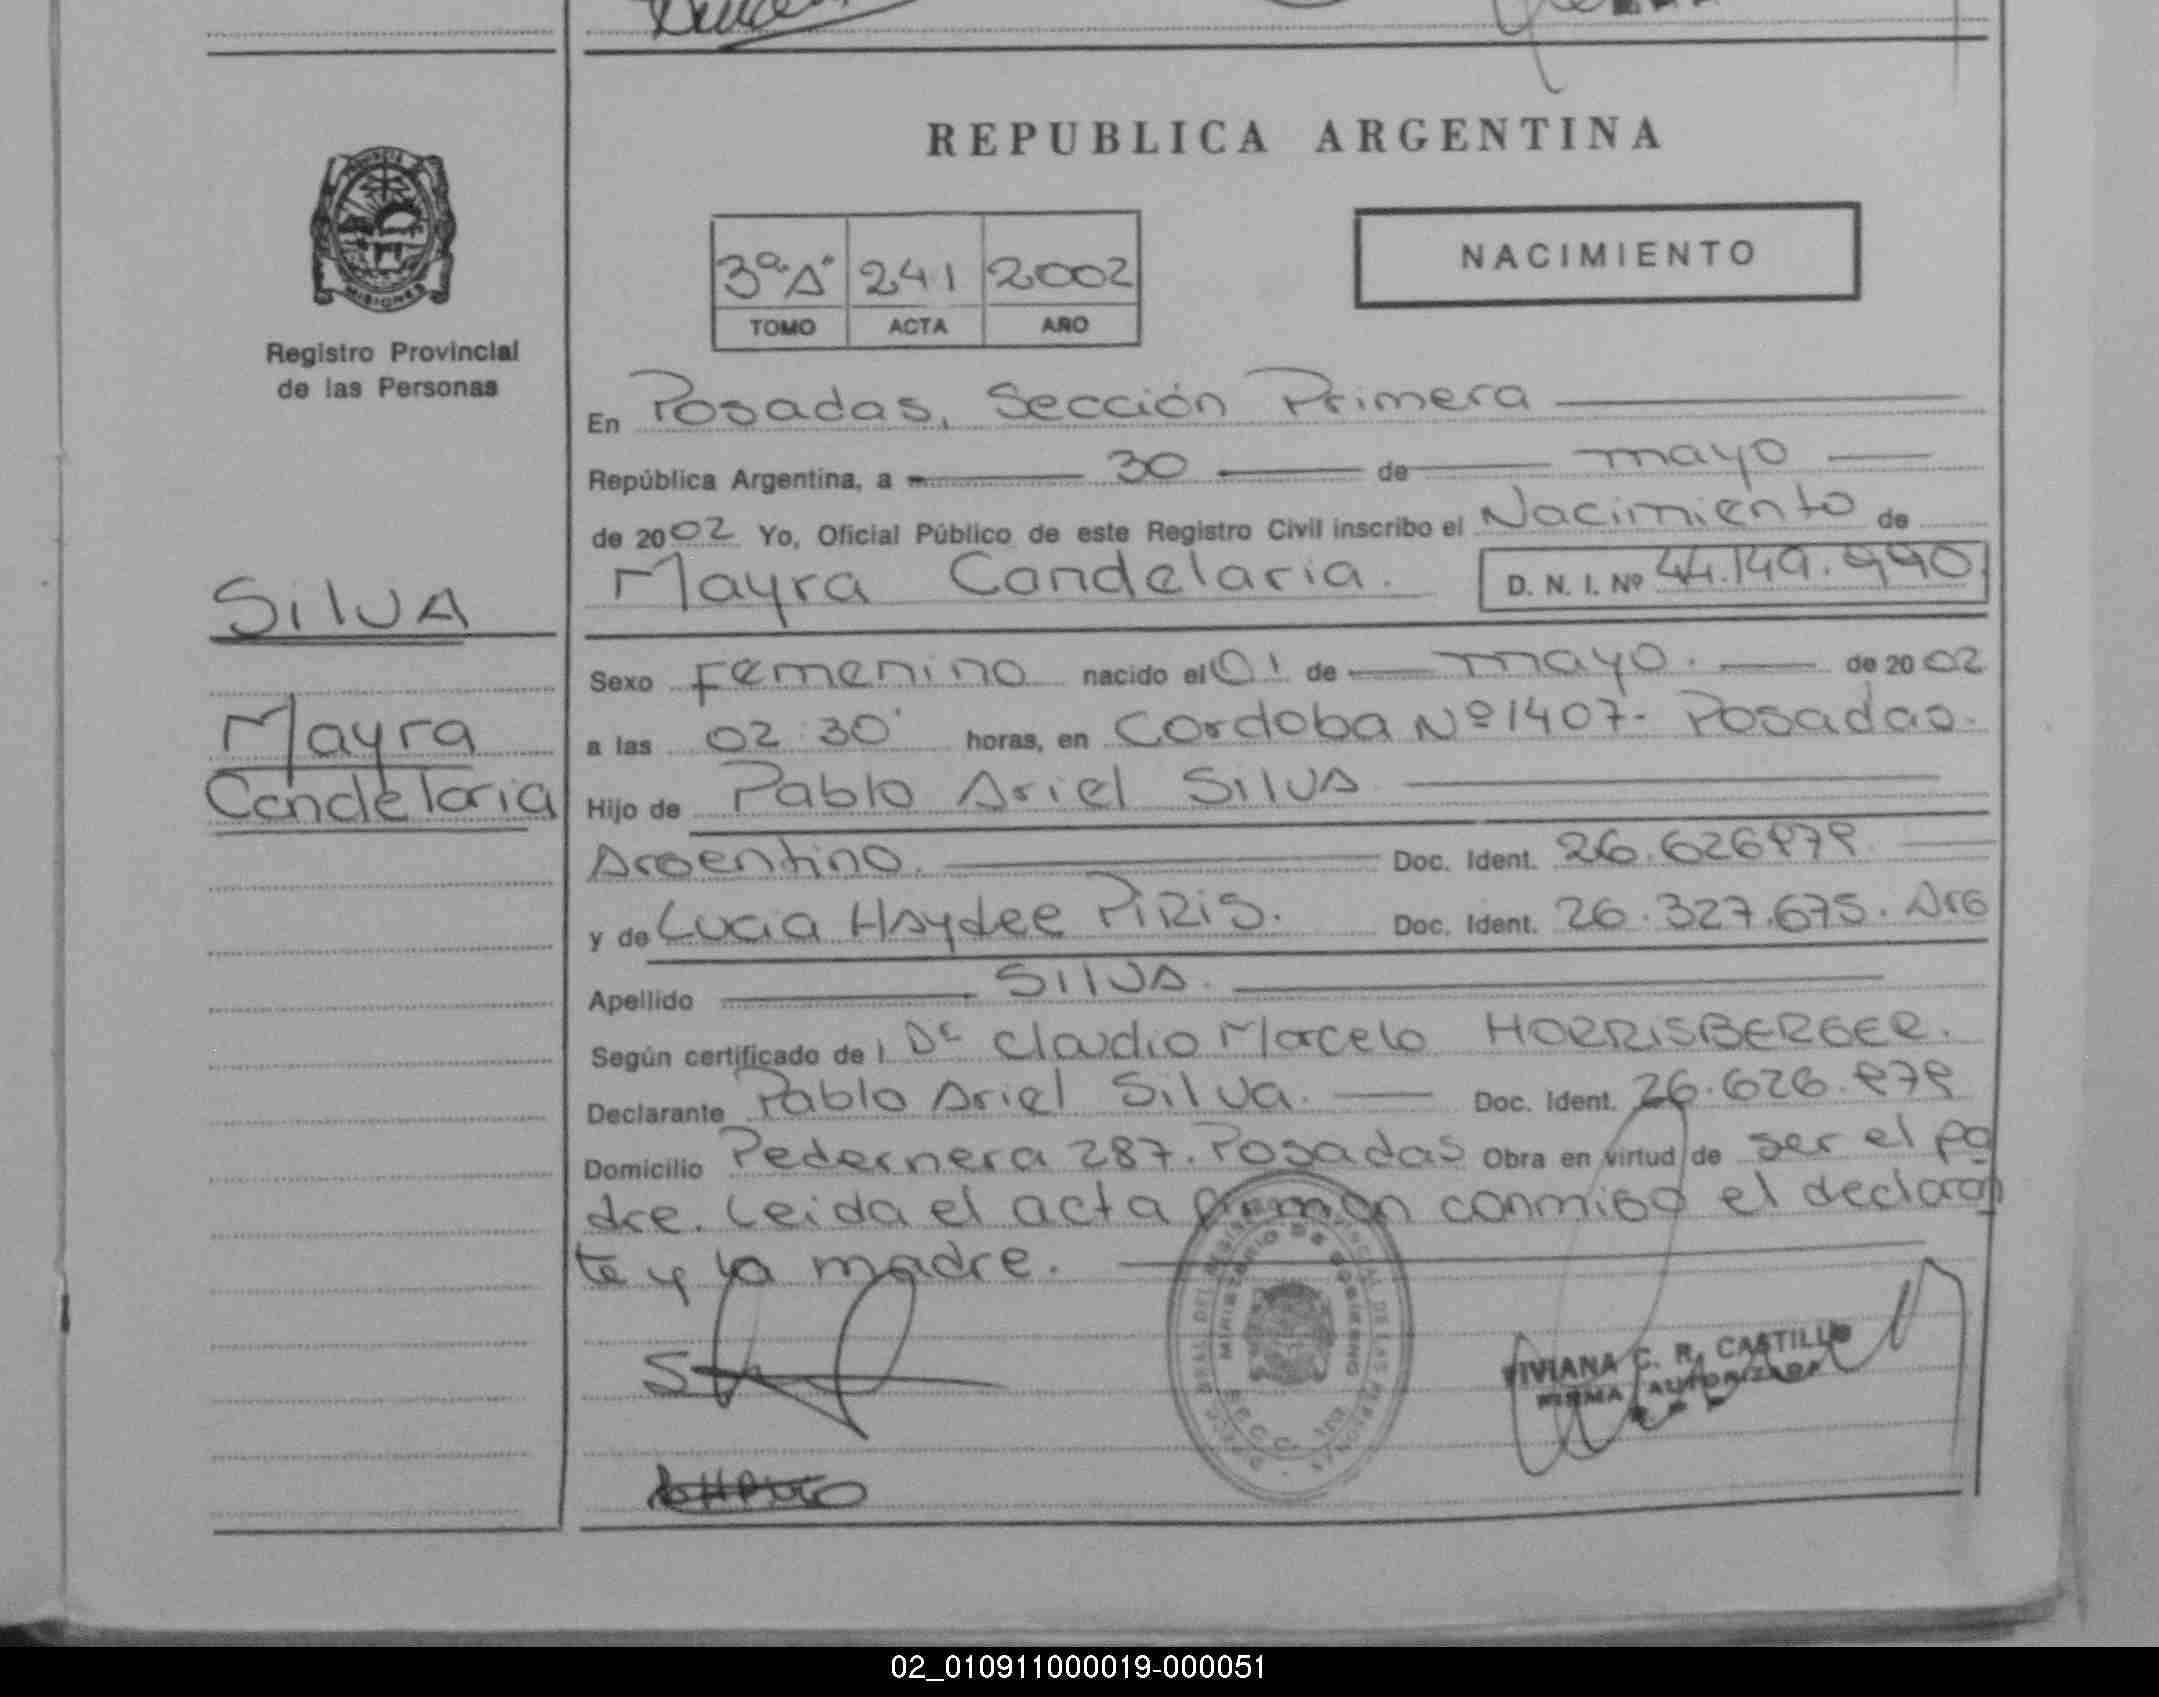 REPUBLICA ARGENTINA
3ª "A" 241 2002
TOMO ACTA AÑO
NACIMIENTO
MISIONES
Registro Provincial
de las Personas
SILVA
Mayra
Candelaria
En Posadas, Sección Primera
República Argentina, a 30 de mayo
de 2002 Yo, Oficial Público de este Registro Civil inscribo el Nacimiento de
Mayra Candelaria. D. N. I. Nº 44.149.990
Sexo Femenino nacido el 01 de mayo. de 2002
a las 02:30' horas, en Cordoba Nº 1407- Posadas.
Hijo de Pablo Ariel SILVA
Argentino. Doc. Ident. 26.626.
y de Lucia Haydee PIRIS. Doc. Ident. 26.327.675. Arg
Apellido SILVA.
Según certificado de l Dr Claudio Marcelo HORRISBERGER.
Declarante Pablo Ariel Silva. Doc. Ident. 26.626.
Domicilio Pedernera 287. Posadas Obra en virtud de ser el pa
dre. Leida el acta firman conmigo el declaran
te y la madre.
MINISTERIO DE GOBIERNO
SECC. 1RA
VIVIANA C. R. CASTILLO
FIRMA AUTORIZADA
02_010911000019-000051